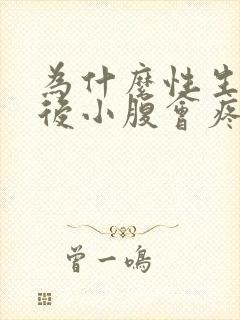 為什麼性生
後小腹會疼
曾一鳴